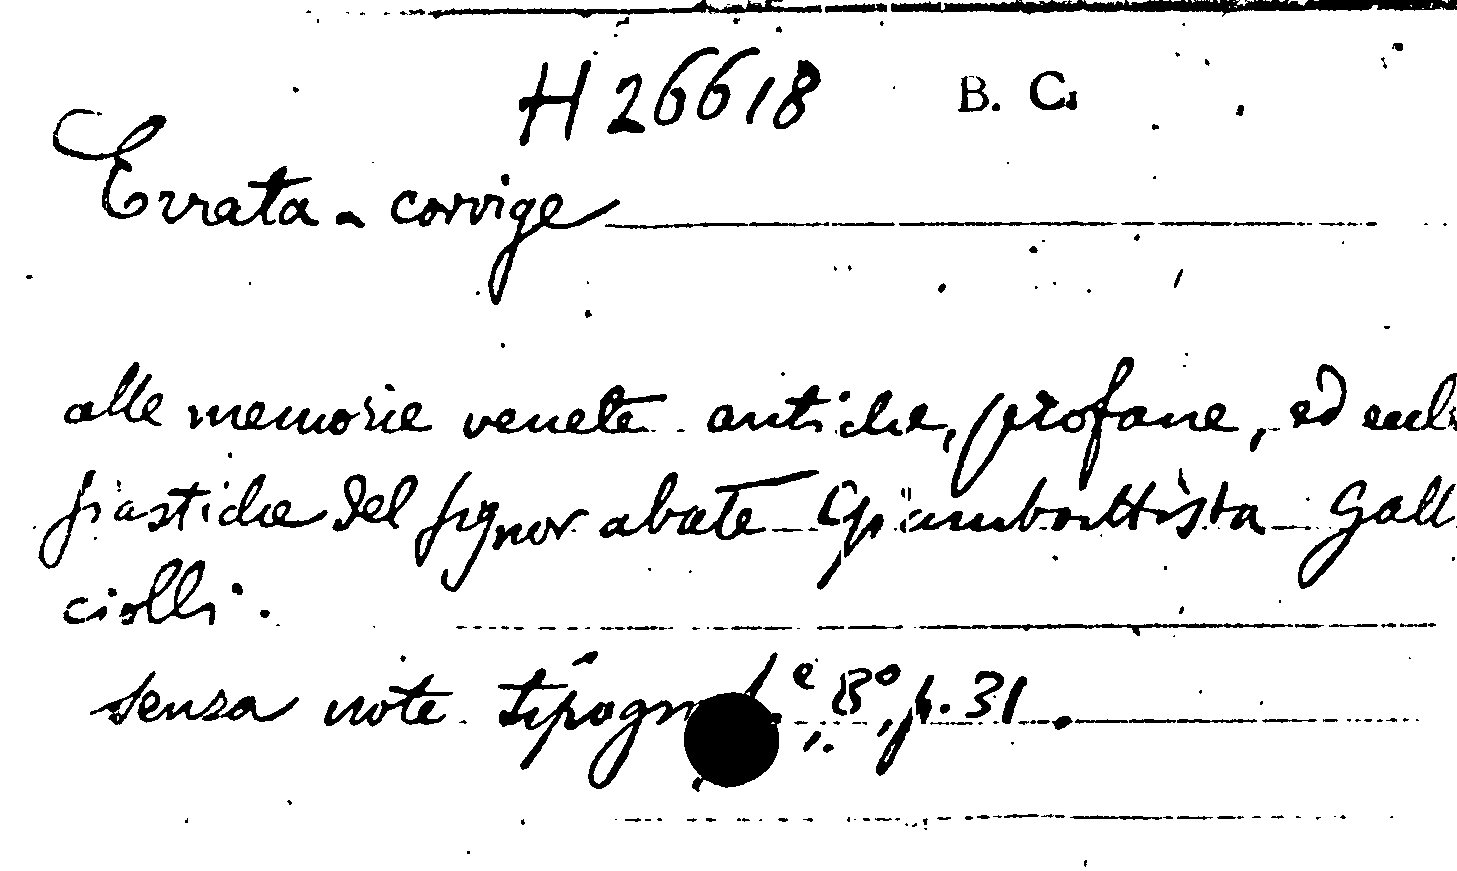 H 26618 B. C.
Errata - corrige
alle memorie venete antiche, profane, ed eccle
siastiche del signor abate Giambattista Galli
ciolli.
senza note 8°, p. 31.